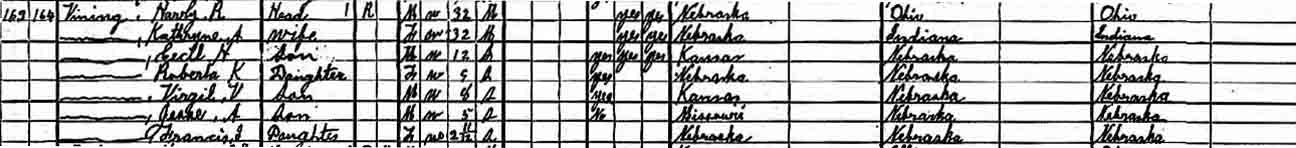 163 164 Vining, Harly R Head 1 R M W 32 M yes yes Nebraska Ohio Ohio
———, Kathryne A Wife F W 32 M yes yes Nebraska Indiana Indiana
———, Cecil H Son M W 12 S yes yes yes Kansas Nebraska Nebraska
——— Roberta K Daughter F W 9 S yes Nebraska Nebraska Nebraska
———, Virgil V Son M W 8 S yes Kansas Nebraska Nebraska
———, A Son M W 5 S No Missouri Nebraska Nebraska
——— Francis J Daughter F W 2 11/12 S Nebraska Nebraska Nebraska